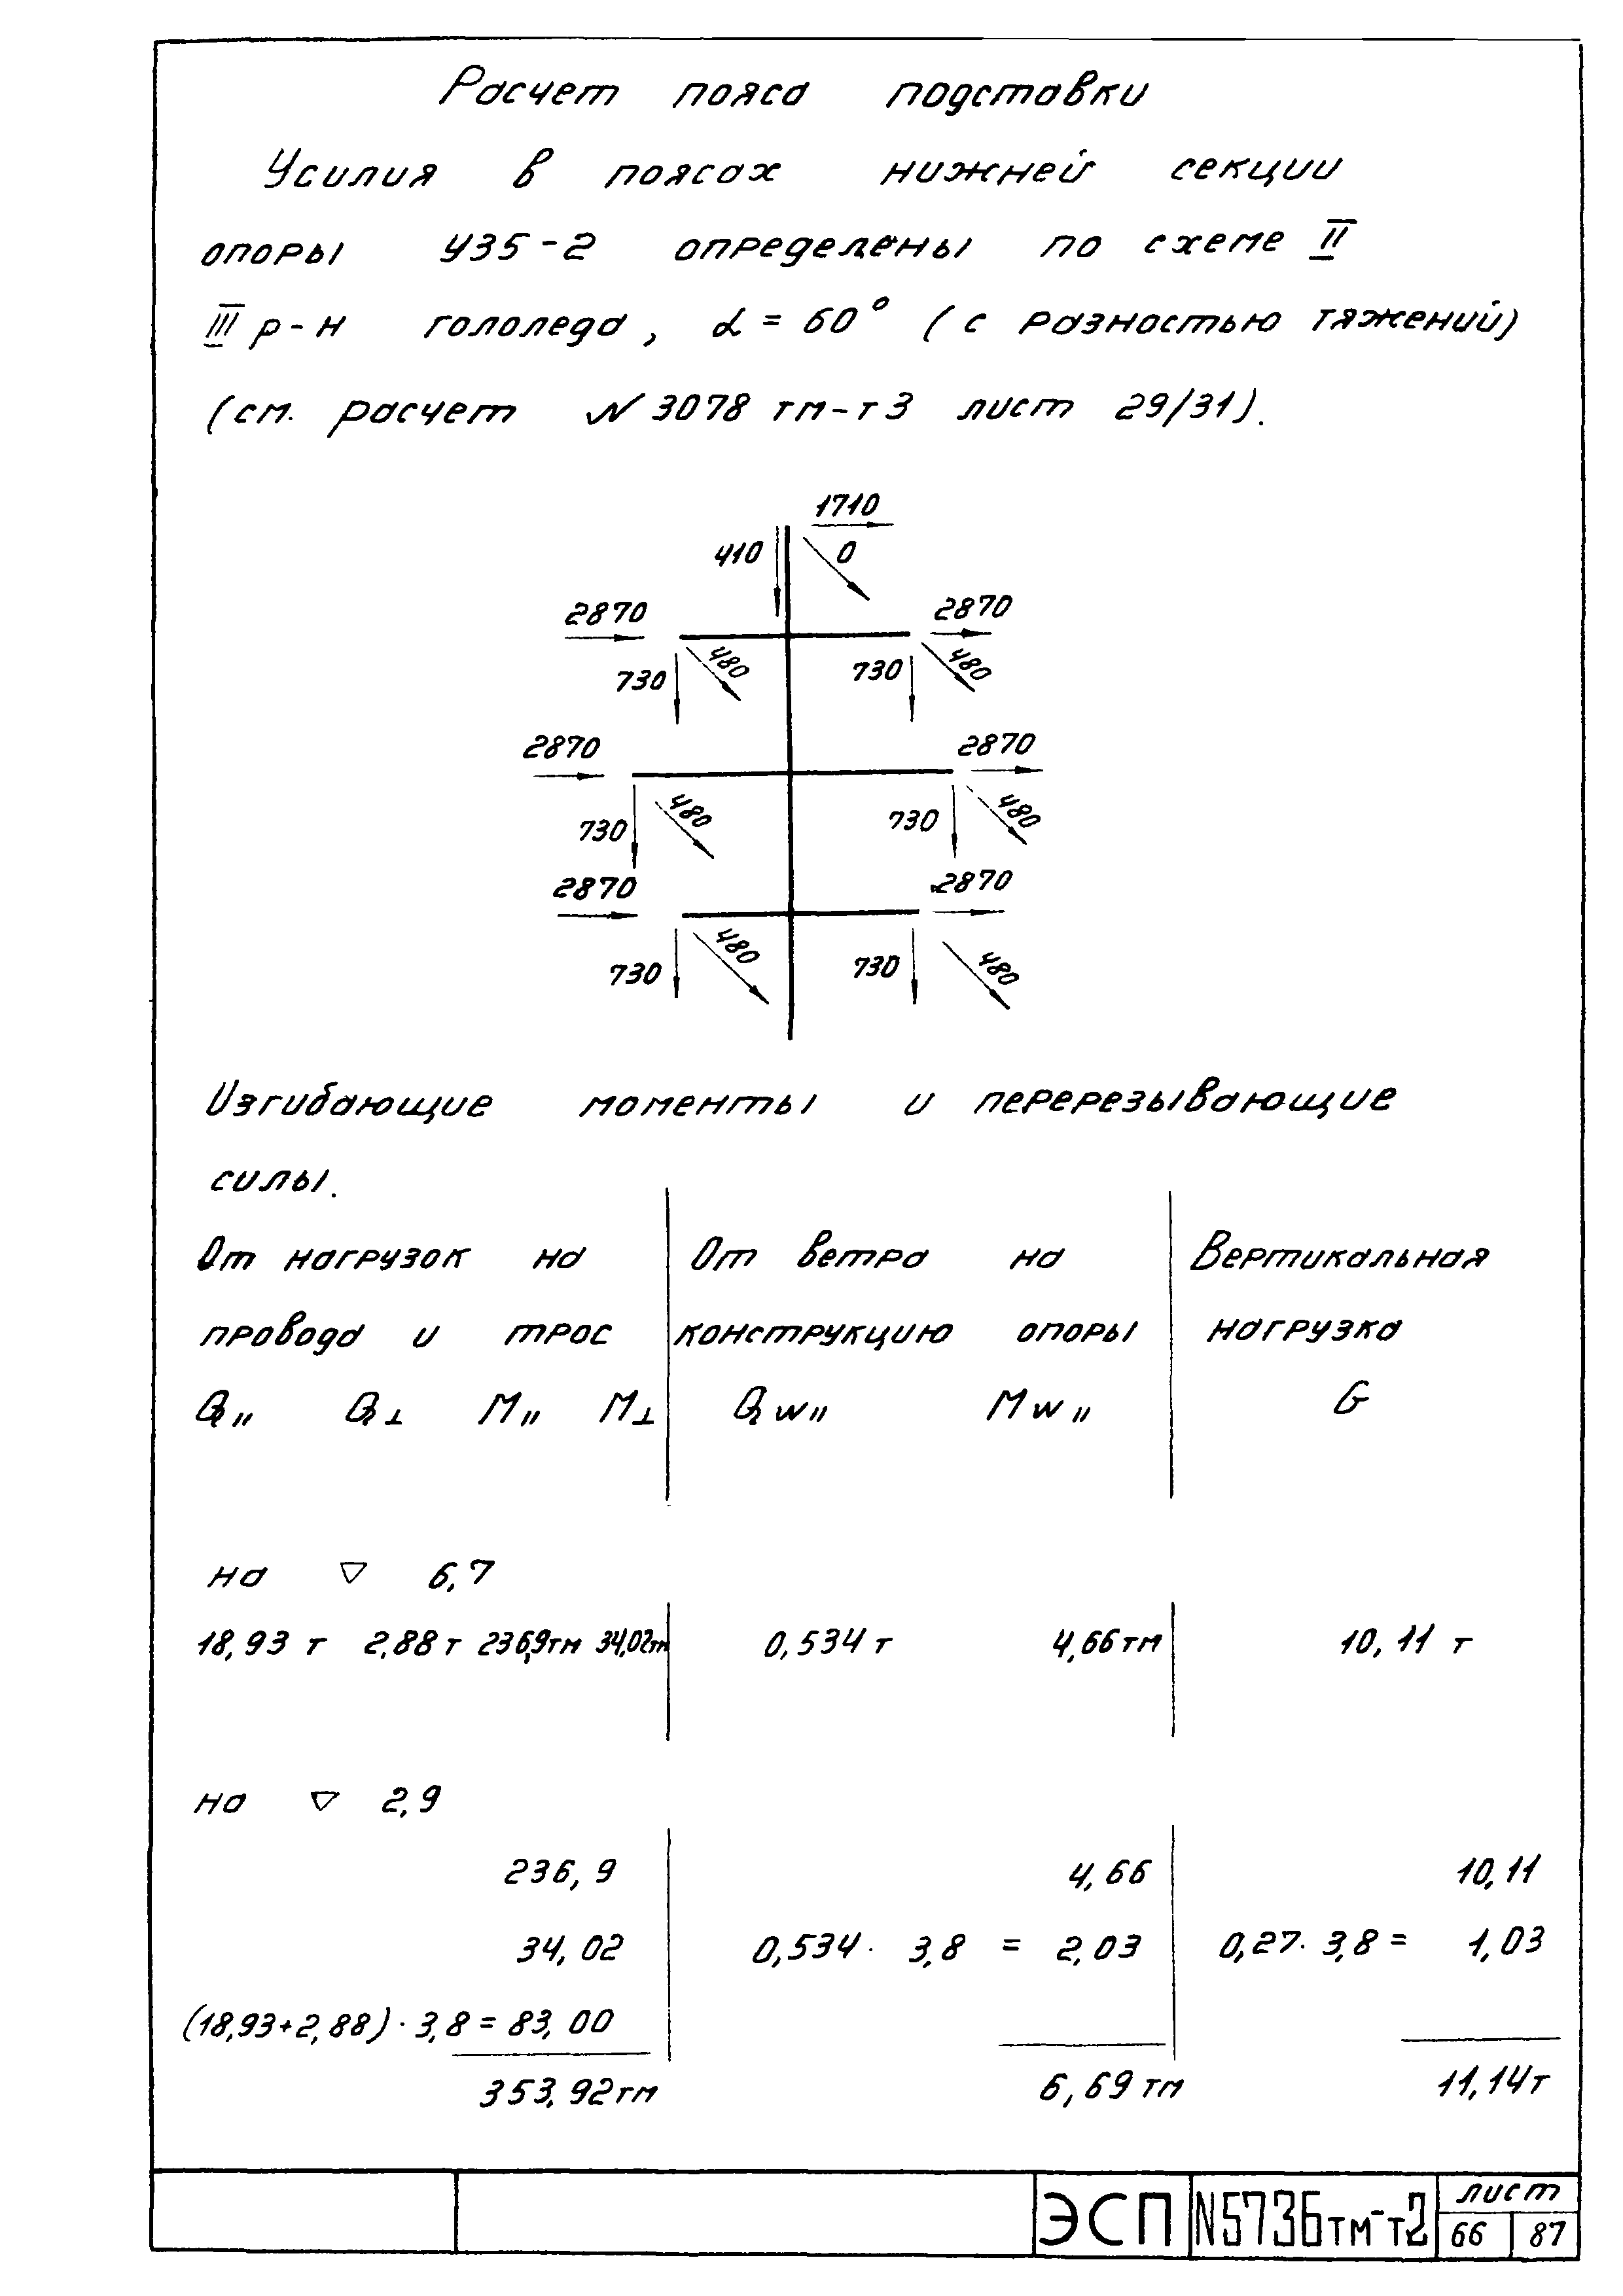 Расчет пояса подставки
Усилия в поясах нижней секции
опоры У35-2 определены по схеме II
III р-н гололеда, α = 60° (с разностью тяжений)
(см. расчет № 3078 тм-т3 лист 29/31).
1710
410 0
2870 2870
730 480 730 480
2870 2870
730 480 730 480
2870 2870
730 480 730 480
Изгибающие моменты и перерезывающие
силы.
От нагрузок на От ветра на Вертикальная
провода и трос конструкцию опоры нагрузка
Q„ Q⊥ M„ M⊥ Qw„ Mw„ G
на ▽ 6,7
18,93 т 2,88 т 236,9тм 34,02тм 0,534 т 4,66 тм 10,11 т
на ▽ 2,9
236,9 4,66 10,11
34,02 0,534 · 3,8 = 2,03 0,27 · 3,8 = 1,03
(18,93+2,88) · 3,8 = 83,00
353,92 тм 6,69 тм 11,14 т
ЭСП N5736тм-т2 лист
66 87